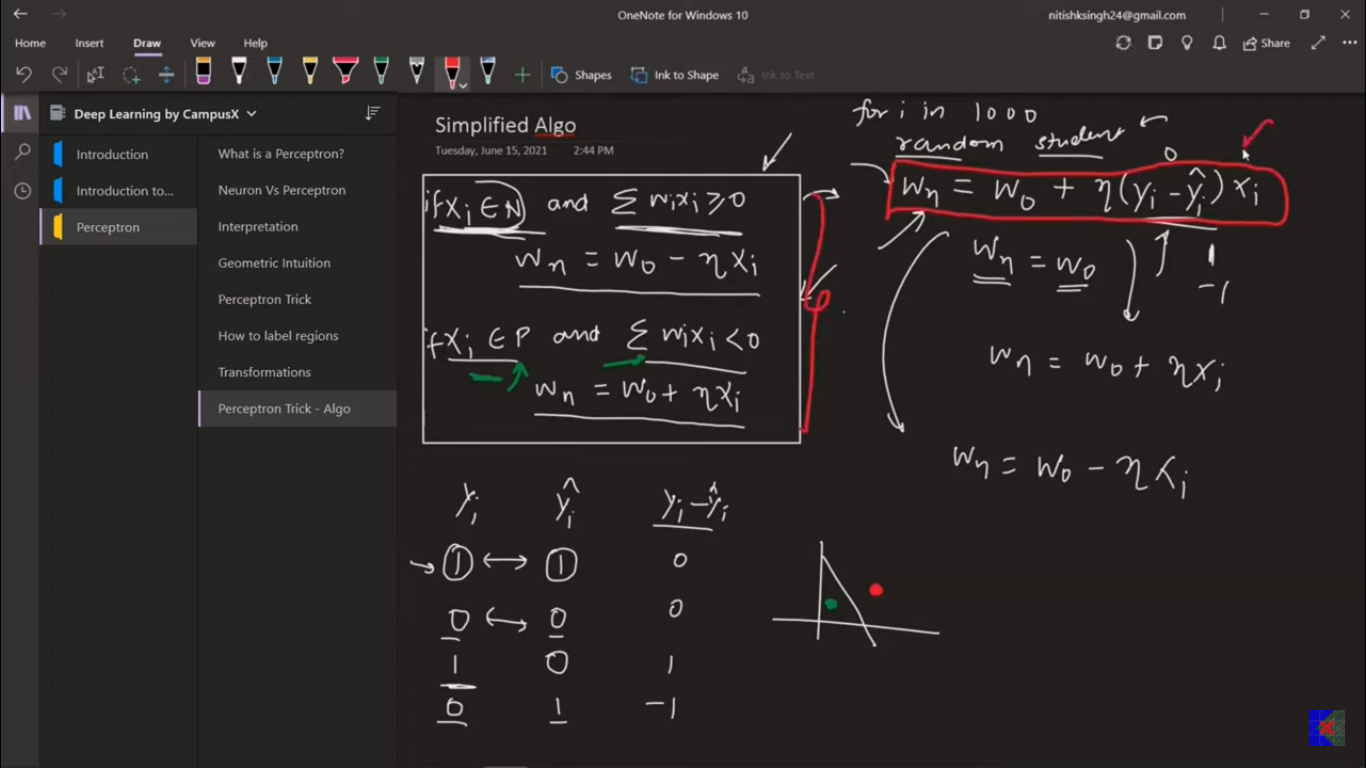 OneNote for Windows 10
nitishksingh24@gmail.com
Home Insert Draw View Help
Share
Shapes
Ink to Shape
Ink to Text
Deep Learning by CampusX
Introduction
Introduction to...
Perceptron
What is a Perceptron?
Neuron Vs Perceptron
Interpretation
Geometric Intuition
Perceptron Trick
How to label regions
Transformations
Perceptron Trick - Algo
Simplified Algo
Tuesday, June 15, 2021 2:44 PM
if xᵢ ∈ N and Σ wᵢxᵢ ≥ 0
wₙ = w₀ - ηxᵢ
if xᵢ ∈ P and Σ wᵢxᵢ < 0
wₙ = w₀ + ηxᵢ
yᵢ ŷᵢ yᵢ - ŷᵢ
1 1 0
0 0 0
1 0 1
0 1 -1
for i in 1000
random student
0
wₙ = w₀ + η(yᵢ - ŷᵢ)xᵢ
wₙ = w₀
1
-1
wₙ = w₀ + ηxᵢ
wₙ = w₀ - ηxᵢ